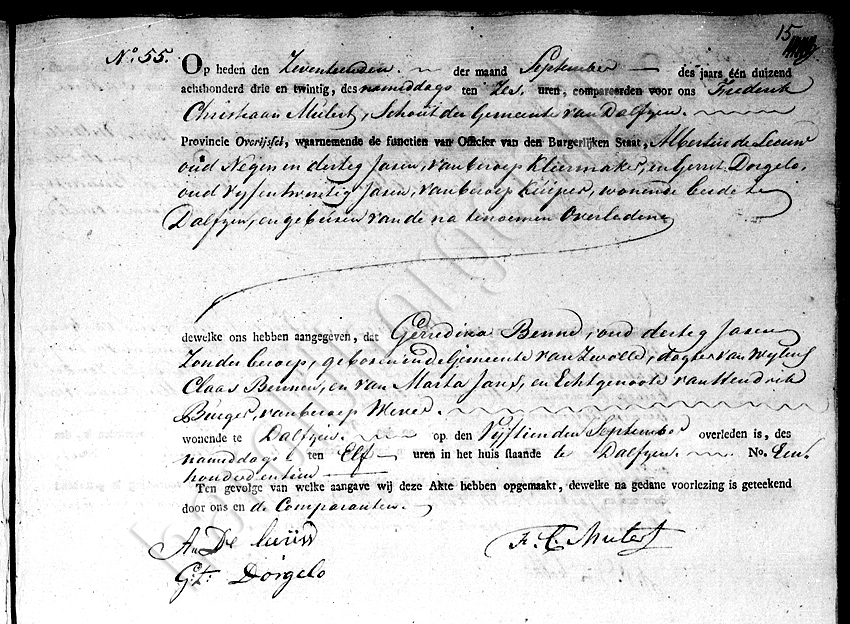 15
N.o 55.
Op heden den Zeventienden. der maand September des jaars één duizend
achthonderd drie en twintig, des namiddags ten Zes, uren, compareerden voor ons Frederik
Christiaan Mulert, Schout der Gemeente van Dalfzen.
Provincie Overijssel, waarnemende de functien van Officier van den Burgerlijken Staat, Albertus de Leeuw
oud Negen en dertig Jaren, van beroep Kleermaker, en Gerrit Dorgelo,
oud vyf en twintig Jaren, van beroep Kuiper, wonende beide te
Dalfzen, en geburen van de na tenoemen Overledene
dewelke ons hebben aangegeven, dat Gerredina Benne, oud dertig Jaren
Zonder beroep, geboren in de Gemeente van Zwolle, dogter van wylens
Claas Bennen, en van Marta Jans, en Echtgenoote van Hendrik
Burger, van beroep Wever.
wonende te Dalfzen. op den Vyftienden September overleden is, des
namiddags ten Elf uren in het huis staande te Dalfzen. No. Een
honderd en tien
Ten gevolge van welke aangave wij deze Akte hebben opgemaakt, dewelke na gedane voorlezing is geteekend
door ons en de Comparanten.
A. De Leeuw F. C. Mulert
G:t: Dorgelo